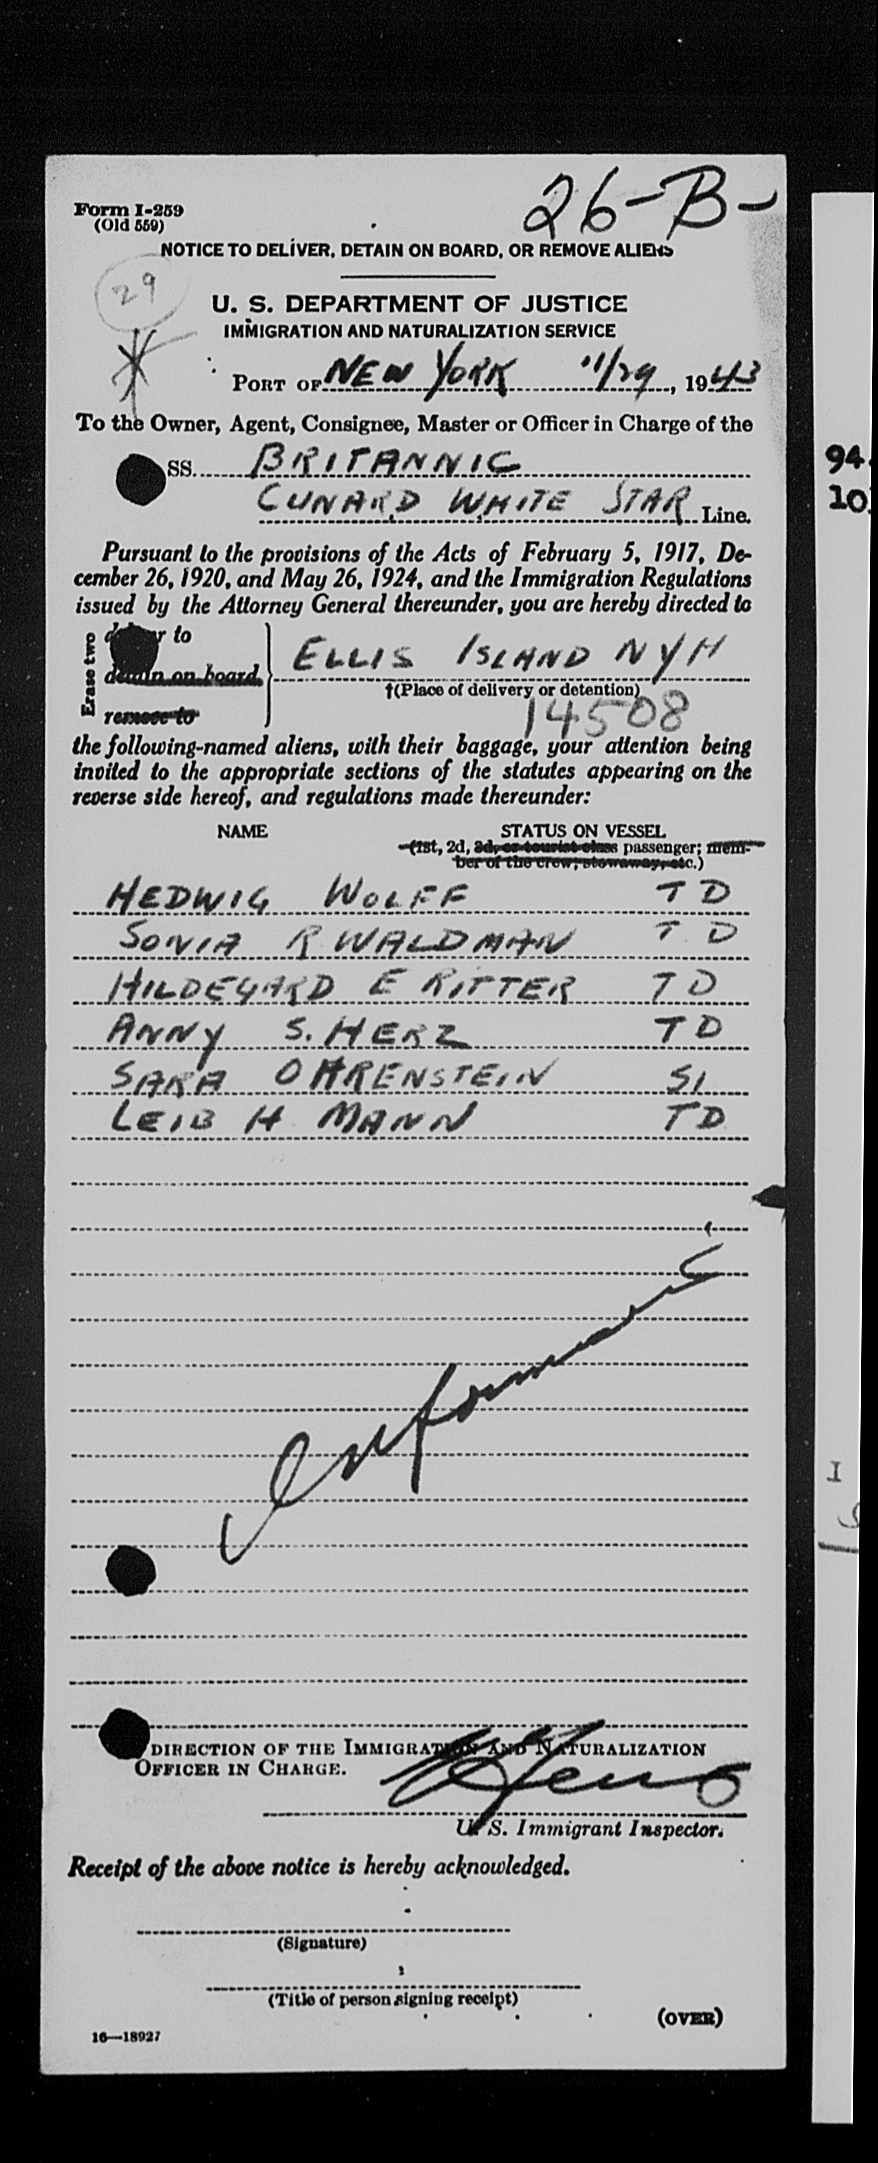 26-B-
Form I-259
(Old 559)
NOTICE TO DELIVER, DETAIN ON BOARD, OR REMOVE ALIENS
29
U. S. DEPARTMENT OF JUSTICE
IMMIGRATION AND NATURALIZATION SERVICE
PORT OF NEW YORK 11/29, 1943
To the Owner, Agent, Consignee, Master or Officer in Charge of the
SS. BRITANNIC
CUNARD WHITE STAR Line.
Pursuant to the provisions of the Acts of February 5, 1917, De-
cember 26, 1920, and May 26, 1924, and the Immigration Regulations
issued by the Attorney General thereunder, you are hereby directed to
Erase two
to
detain on board
remove to
ELLIS ISLAND NYH
†(Place of delivery or detention)
14508
the following-named aliens, with their baggage, your attention being
invited to the appropriate sections of the statutes appearing on the
reverse side hereof, and regulations made thereunder:
NAME STATUS ON VESSEL
(1st, 2d, 3d, or tourist class passenger; mem-
ber of the crew; stowaway, etc.)
HEDWIG WOLFF TD
SONIA R WALDMAN TD
HILDEGARD E RITTER TD
ANNY S. HERZ TD
SARA OHRENSTEIN SI
LEIB H MANN TD
DIRECTION OF THE IMMIGRATION AND NATURALIZATION
OFFICER IN CHARGE.
U. S. Immigrant Inspector.
Receipt of the above notice is hereby acknowledged.
(Signature)
(Title of person signing receipt)
(OVER)
16—18927
94
10
I